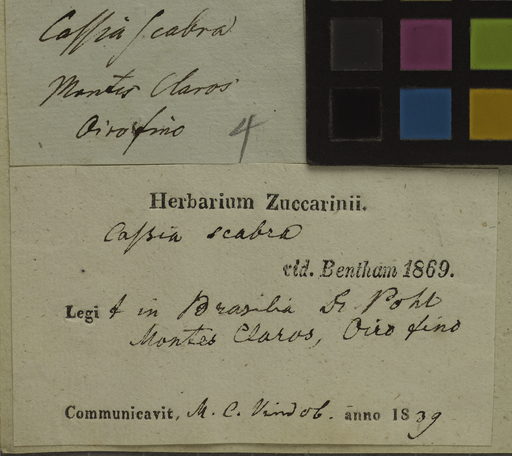 Cassia scabra
Montes Claros
Oiro fino
4
Herbarium Zuccarinii.
Cassia scabra
vid. Bentham 1869.
Legi t in Brasilia Dr Pohl
Montes Claros, Oiro fino
Communicavit, M. C. Vindob. anno 1839